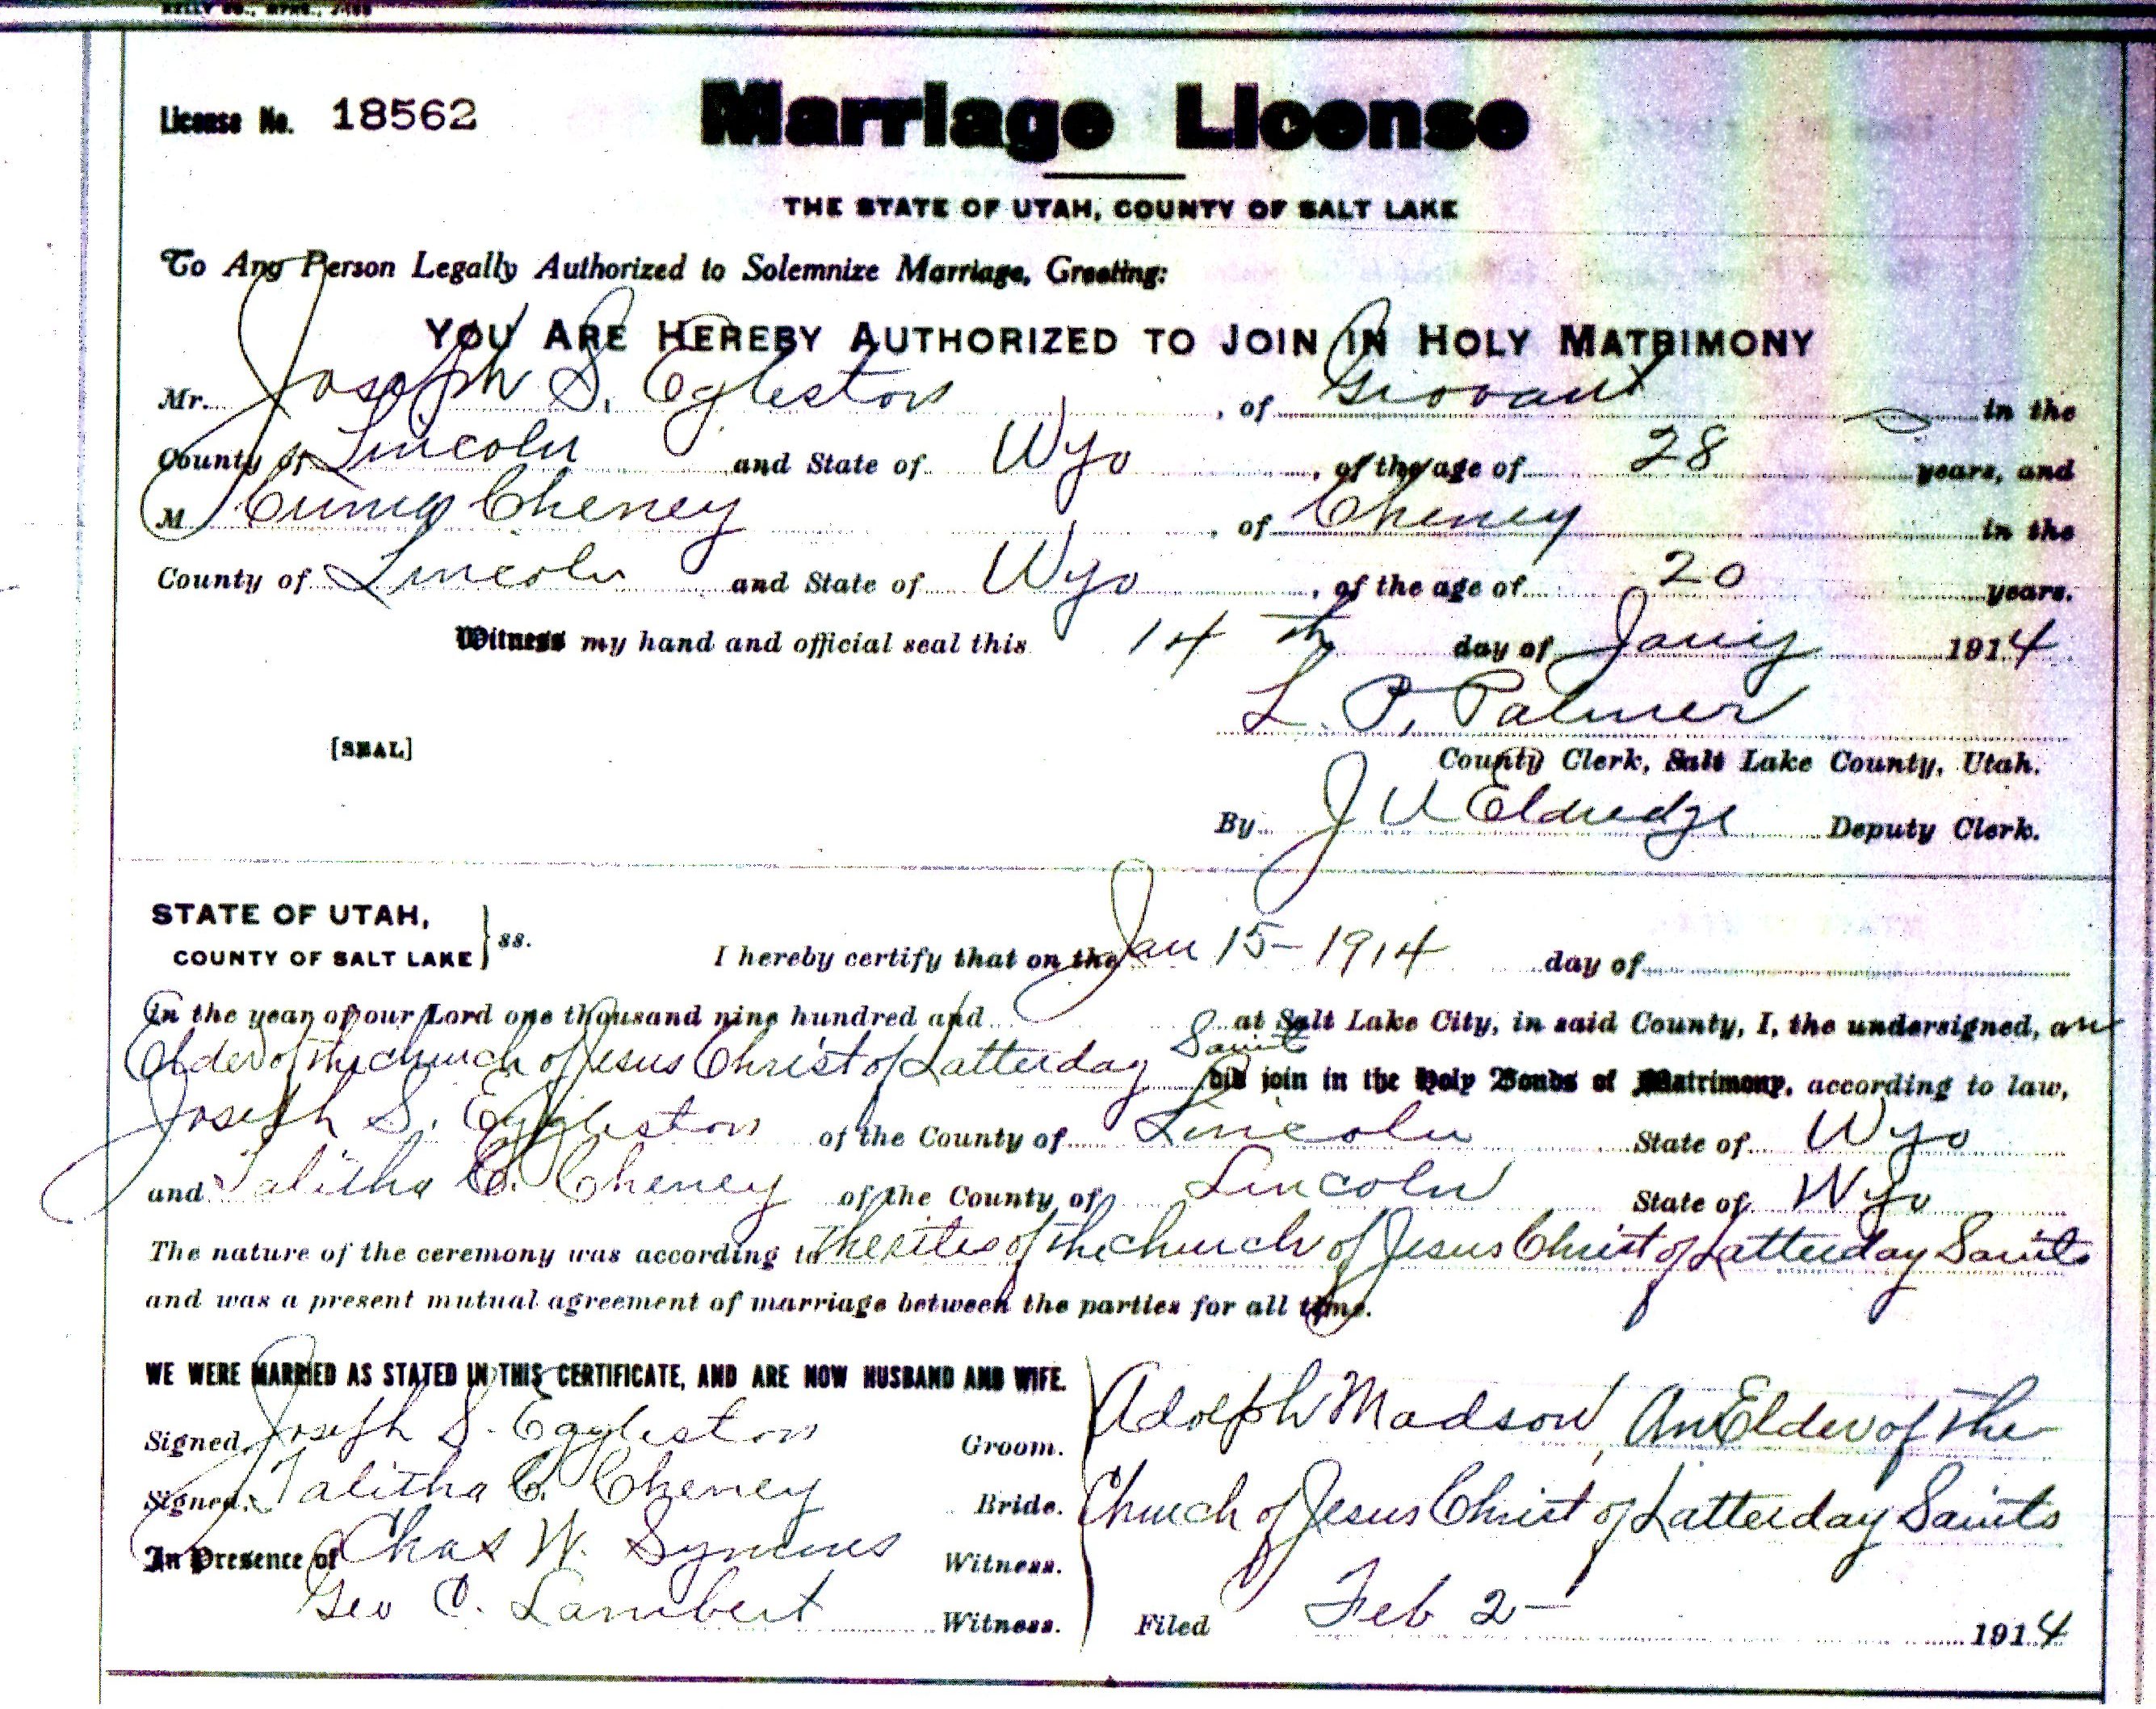 KELLY CO., MFRS.,
License No. 18562
Marriage License
THE STATE OF UTAH, COUNTY OF SALT LAKE
To Any Person Legally Authorized to Solemnize Marriage, Greeting:
YOU ARE HEREBY AUTHORIZED TO JOIN IN HOLY MATRIMONY
Mr. Joseph S. Egleston, of Grovant in the
County of Lincoln and State of Wyo, of the age of 28 years, and
M Cuma Cheney, of Cheney in the
County of Lincoln and State of Wyo, of the age of 20 years.
Witness my hand and official seal this 14th day of Jany 1914
L. P. Palmer
[SEAL]
County Clerk, Salt Lake County, Utah.
By J U Eldredge Deputy Clerk.
STATE OF UTAH,
COUNTY OF SALT LAKE } ss.
I hereby certify that on the Jan 15- 1914 day of
in the year of our Lord one thousand nine hundred and at Salt Lake City, in said County, I, the undersigned, an
Elder of the church of Jesus Christ of Latterday Saints did join in the Holy Bonds of Matrimony, according to law,
Joseph S. Eggleston of the County of Lincoln State of Wyo
and Talitha C. Cheney of the County of Lincoln State of Wyo
The nature of the ceremony was according to the rites of the church of Jesus Christ of Latterday Saints
and was a present mutual agreement of marriage between the parties for all time.
WE WERE MARRIED AS STATED IN THIS CERTIFICATE, AND ARE NOW HUSBAND AND WIFE.
Signed, Joseph S. Eggleston Groom.
Signed, Talitha C. Cheney Bride.
In Presence of Chas W. Symons Witness.
Geo C. Lambert Witness.
Adolph Madson, An Elder of the
Church of Jesus Christ of Latterday Saints
Filed Feb 2- 1914